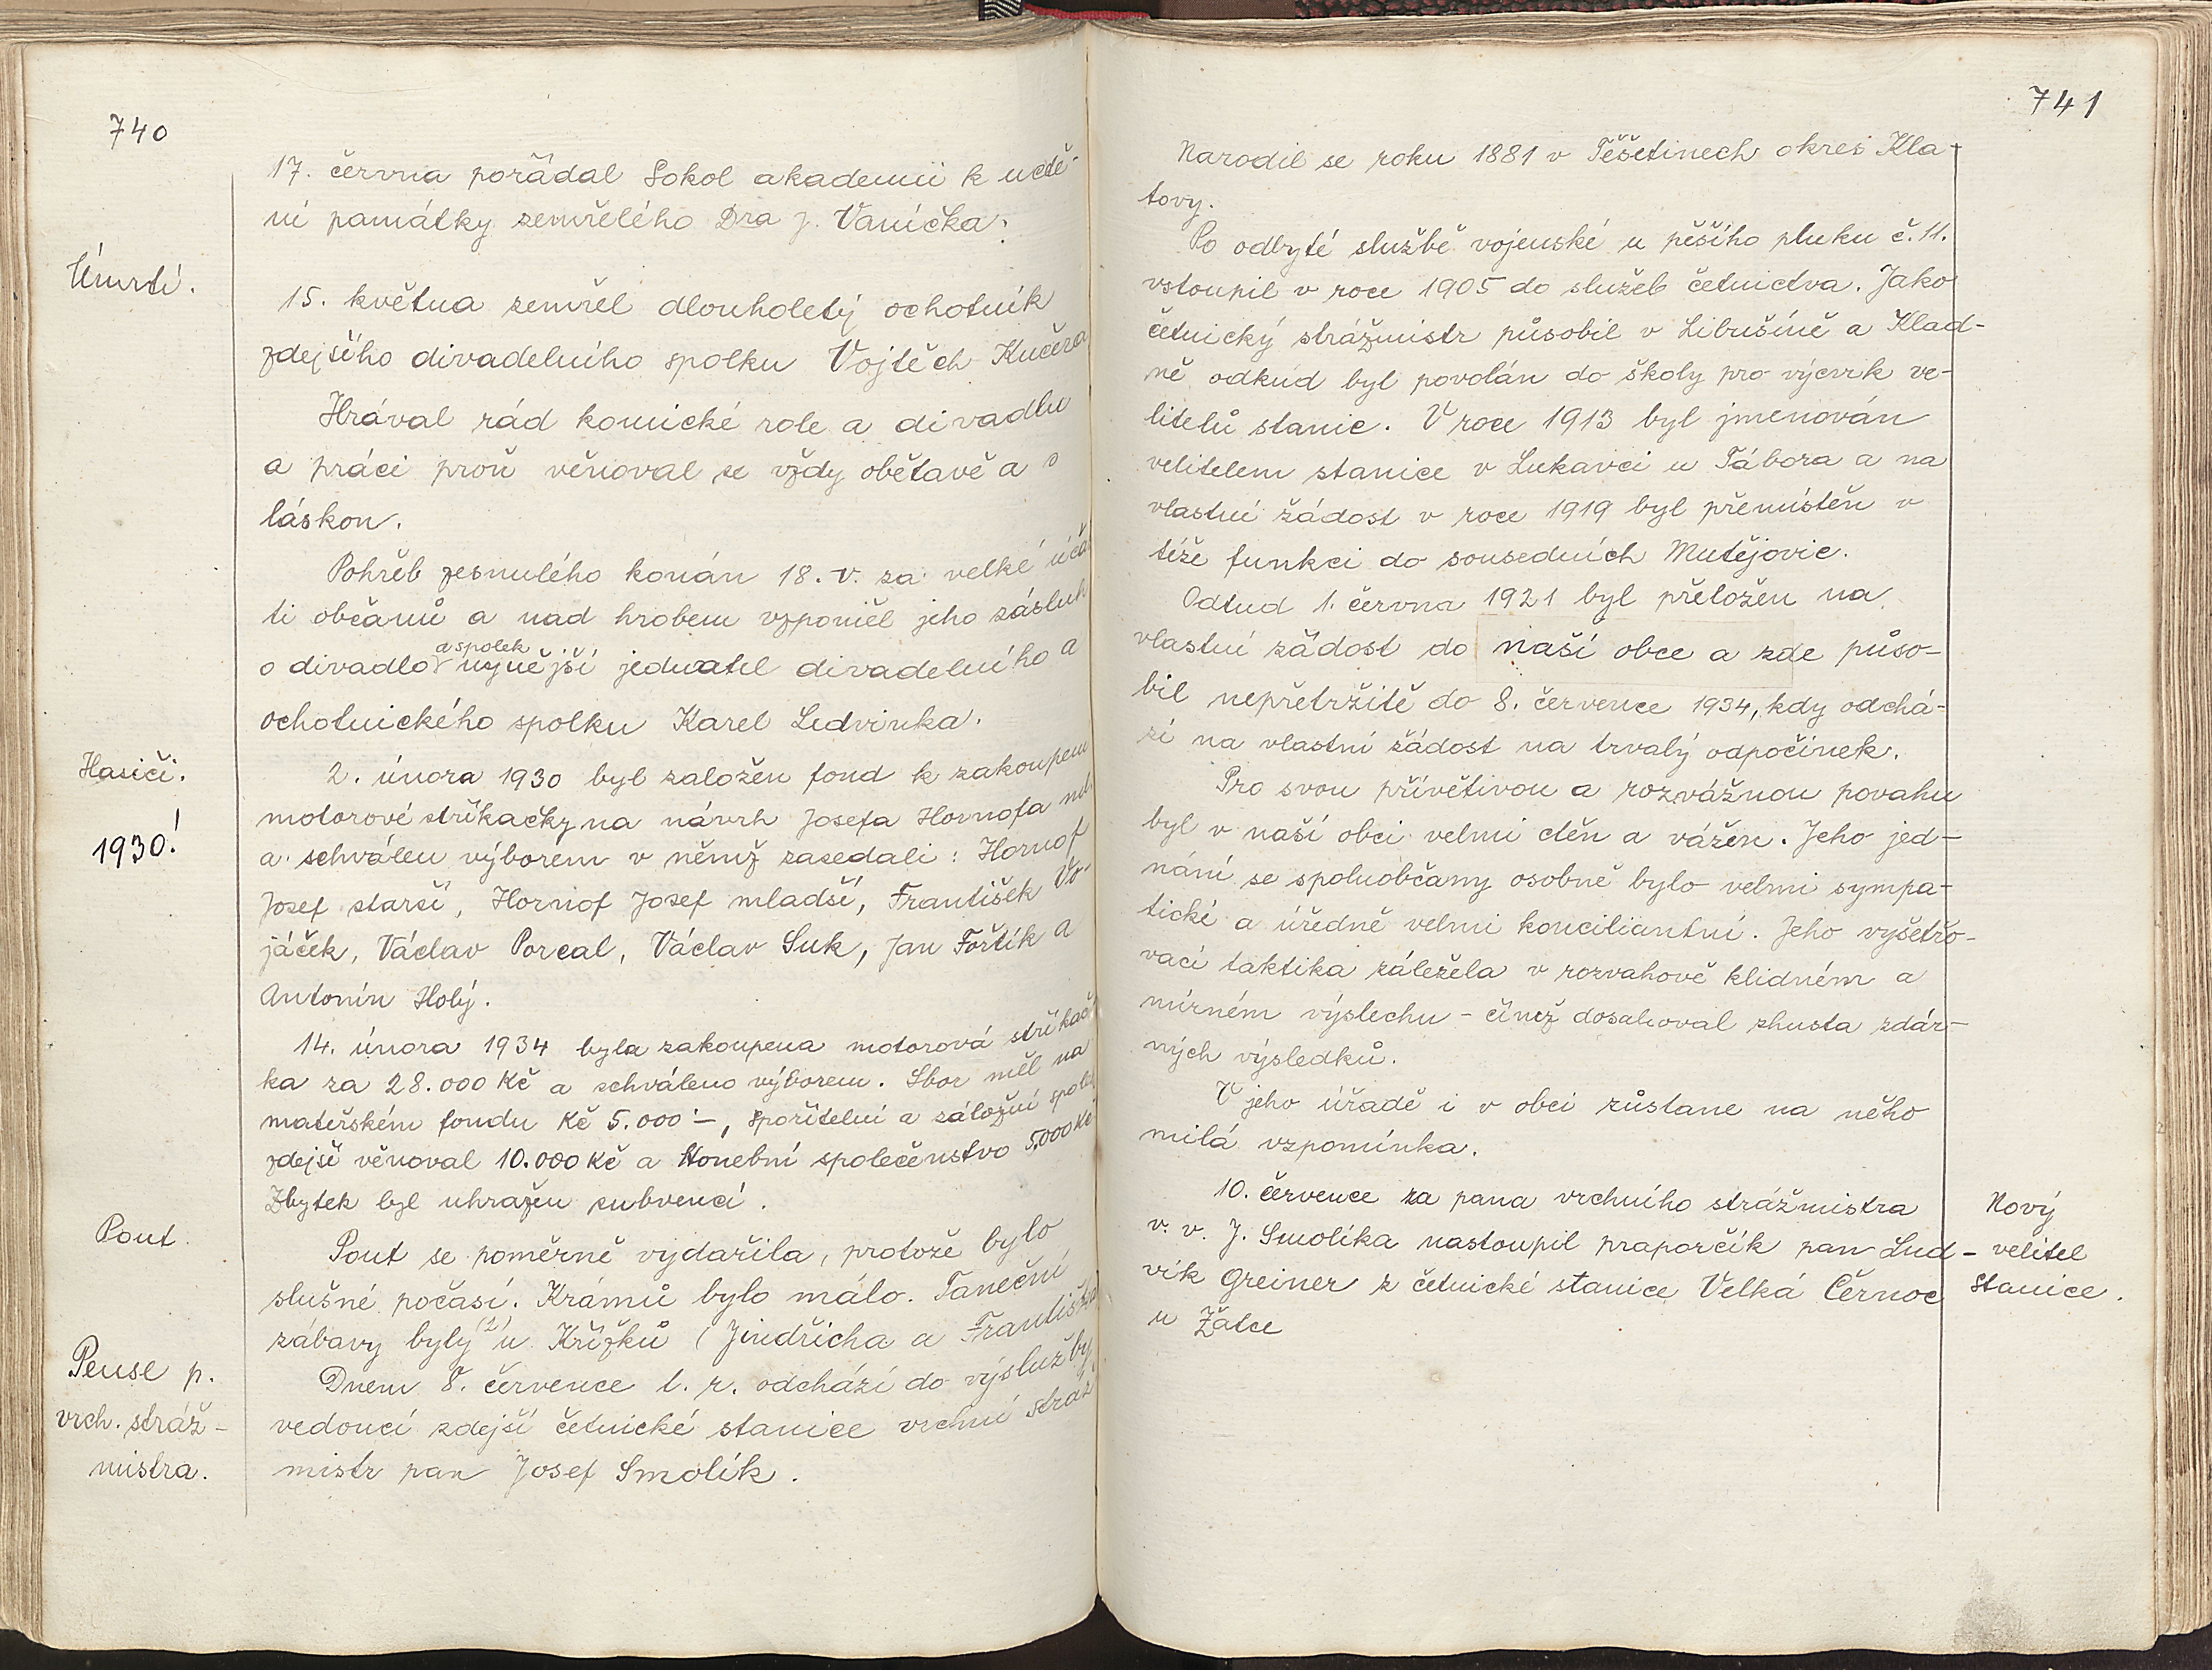 740
17. června pořádal Sokol akademii k uctě-
ní památky zemřelého Dra J. Vaníčka.
Úmrtí.
15. května zemřel dlouholetý ochotník
zdejšího divadelního spolku Vojtěch Kučera
Hrával rád komické role a divadlu
a práci proň věnoval se vždy obětavě a s
láskou.
Pohřeb zesnulého konán 18. V. za velké účas
ti občanů a nad hrobem vzpoměl jeho zásluh
o divadlo a spolek nynější jednatel divadelního a
ochotnického spolku Karel Ledvinka.
Hasiči.
1930!
2. února 1930 byl založen fond k zakoupení
motorové stříkačky na návrh Josefa Hornofa ml.
a schválen výborem v němž zasedali: Hornof
Josef starší, Hornof Josef mladší, František Vo-
jáček, Václav Porcal, Václav Suk, Jan Fořtík a
Antonín Holý.
14. února 1934 byla zakoupena motorová stříkač
ka za 28.000 Kč a schváleno výborem. Sbor měl na
mateřském fondu Kč 5.000·–, spořitelní a záložní spolek
zdejší věnoval 10.000 Kč a Honební společenstvo 5.000 Kč
Zbytek byl uhražen subvencí.
Pouť.
Pouť se poměrně vydařila, protože bylo
slušné počasí. Krámů bylo málo. Taneční
zábavy byly (2) u Křížků (Jindřicha a Františka
Pense p.
vrch. stráž-
mistra.
Dnem 8. července t. r. odchází do výslužby
vedoucí zdejší četnické stanice vrchní stráž
mistr pan Josef Smolík.
741
Narodil se roku 1881 v Těšetinech okres Kla-
tovy.
Po odbyté službě vojenské u pěšího pluku č. 11.
vstoupil v roce 1905 do služeb četnictva. Jako
četnický strážmistr působil v Libušíně a Klad-
ně odkud byl povolán do školy pro výcvik ve-
litelů stanic. V roce 1913 byl jmenován
velitelem stanice v Lukavci u Tábora a na
vlastní žádost v roce 1919 byl přemístěn v
téže funkci do sousedních Mutějovic.
Odtud 1. června 1921 byl přeložen na
vlastní žádost do naší obce a zde půso-
bil nepřetržitě do 8. července 1934, kdy odchá-
zí na vlastní žádost na trvalý odpočinek.
Pro svou přívětivou a rozvážnou povahu
byl v naší obci velmi ctěn a vážen. Jeho jed-
nání se spoluobčany osobně bylo velmi sympa-
tické a úředně velmi konciliantní. Jeho vyšetřo-
vací taktika záležela v rozvahově klidném a
mírném výslechu - čímž dosahoval zhusta zdár-
ných výsledků.
V jeho úřadě i v obci zůstane na něho
milá vzpomínka.
10. července za pana vrchního strážmistra
v. v. J. Smolíka nastoupil praporčík pan Lud-
vík Greiner z četnické stanice Velká Černoc
u Žatce
Nový
velitel
stanice.